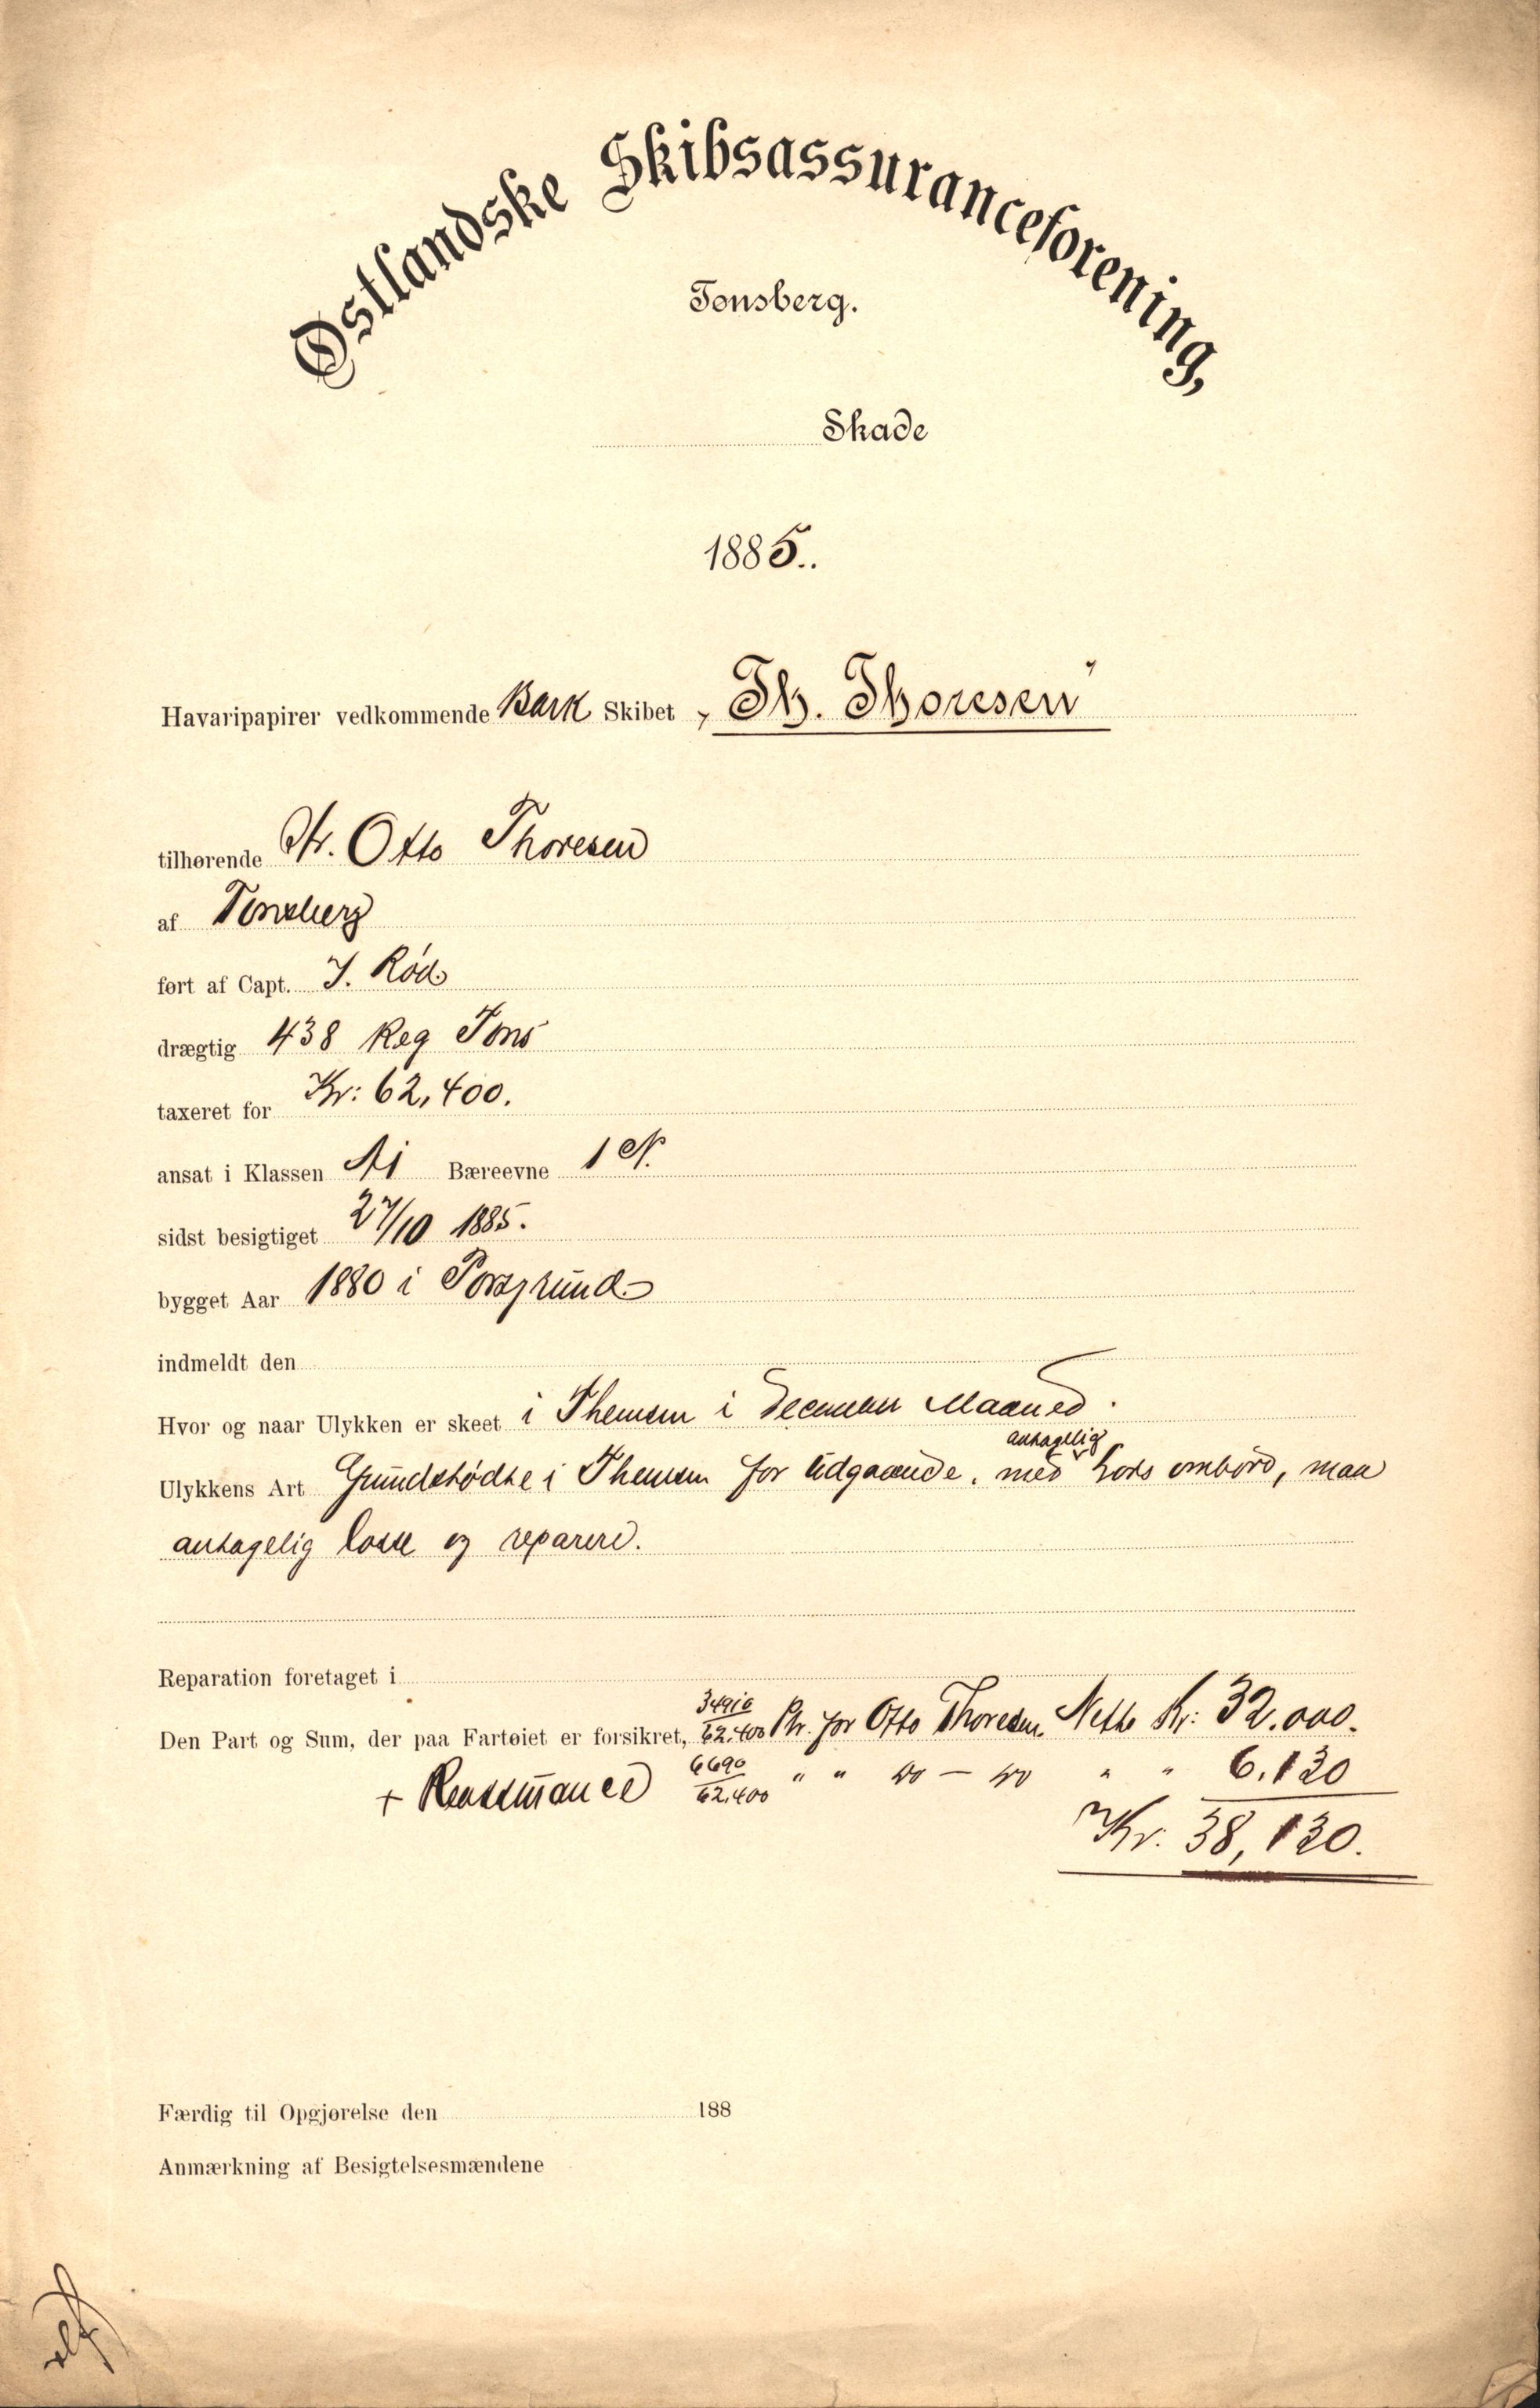 Østlandske Skibsassuranceforening,
Tønsberg.
Skade
1885..
Havaripapirer vedkommende Bark Skibet „Th. Thoresen"
tilhørende Hr. Otto Thoresen
af Tønsberg
ført af Capt. J. Rød
drægtig 438 Reg Tons
taxeret for Kr: 62,400.
ansat i Klassen A1 Bæreevne 1 N.
sidst besigtiget 27/10 1885.
bygget Aar 1880 i Porsgrund
indmeldt den
Hvor og naar Ulykken er skeet i Themsen i December Maaned.
antagelig
Ulykkens Art Grundstødte i Themsen for Udgaaende. med Lods ombord, maa
antagelig losse og reparere.
Reparation foretaget i
Den Part og Sum, der paa Fartøiet er forsikret, 34910/62.400 Pr. for Otto Thoresen Netto Kr: 32.000.
+ Reassurance 6690/62.400 " " do — do " " 6.130
Kr. 38,130.
Færdig til Opgjørelse den 188
Anmærkning af Besigtelsesmændene